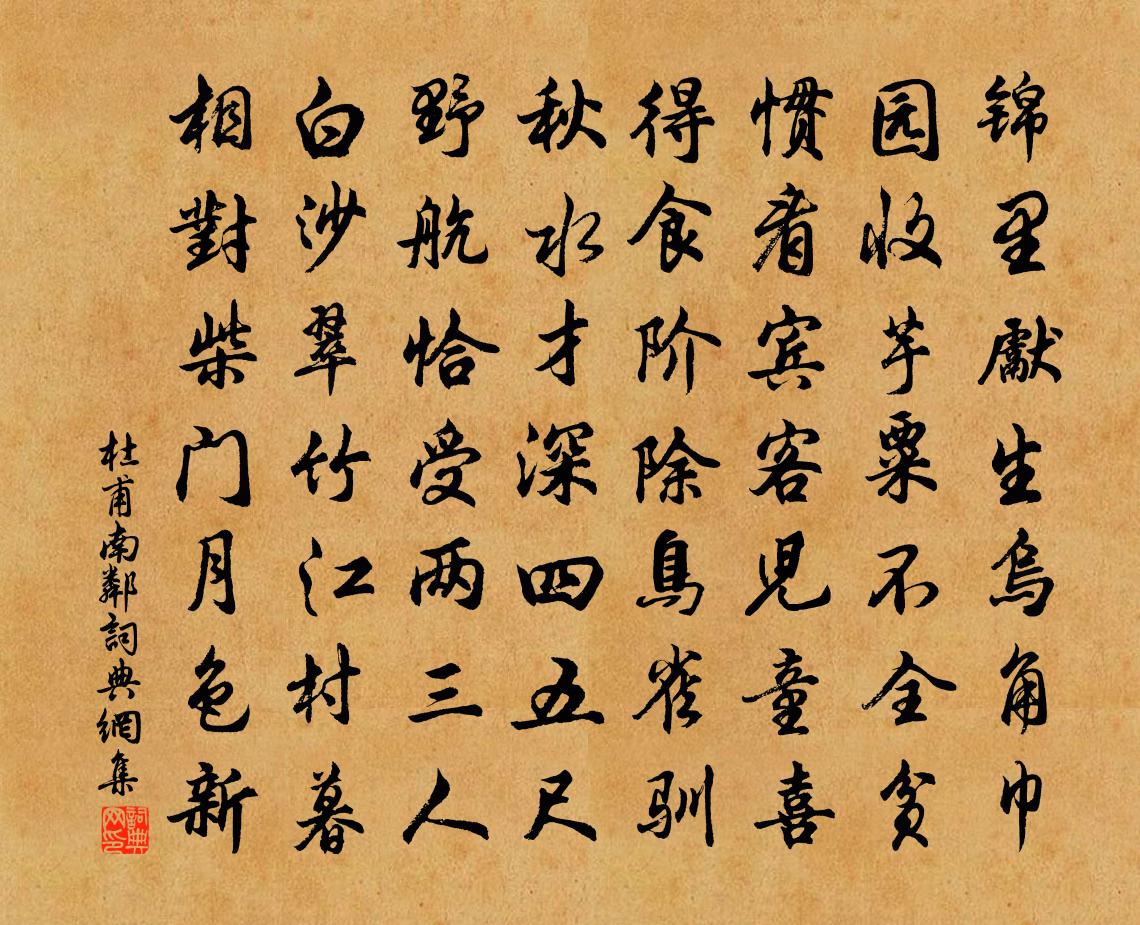 锦里獻生烏角巾
园收芋粟不全贫
惯看宾客児童喜
得食阶除鳥雀驯
秋水才深四五尺
野航恰受两三人
白沙翠竹江村暮
相對柴门月色新
杜甫南鄰詞典網集
詞典网印